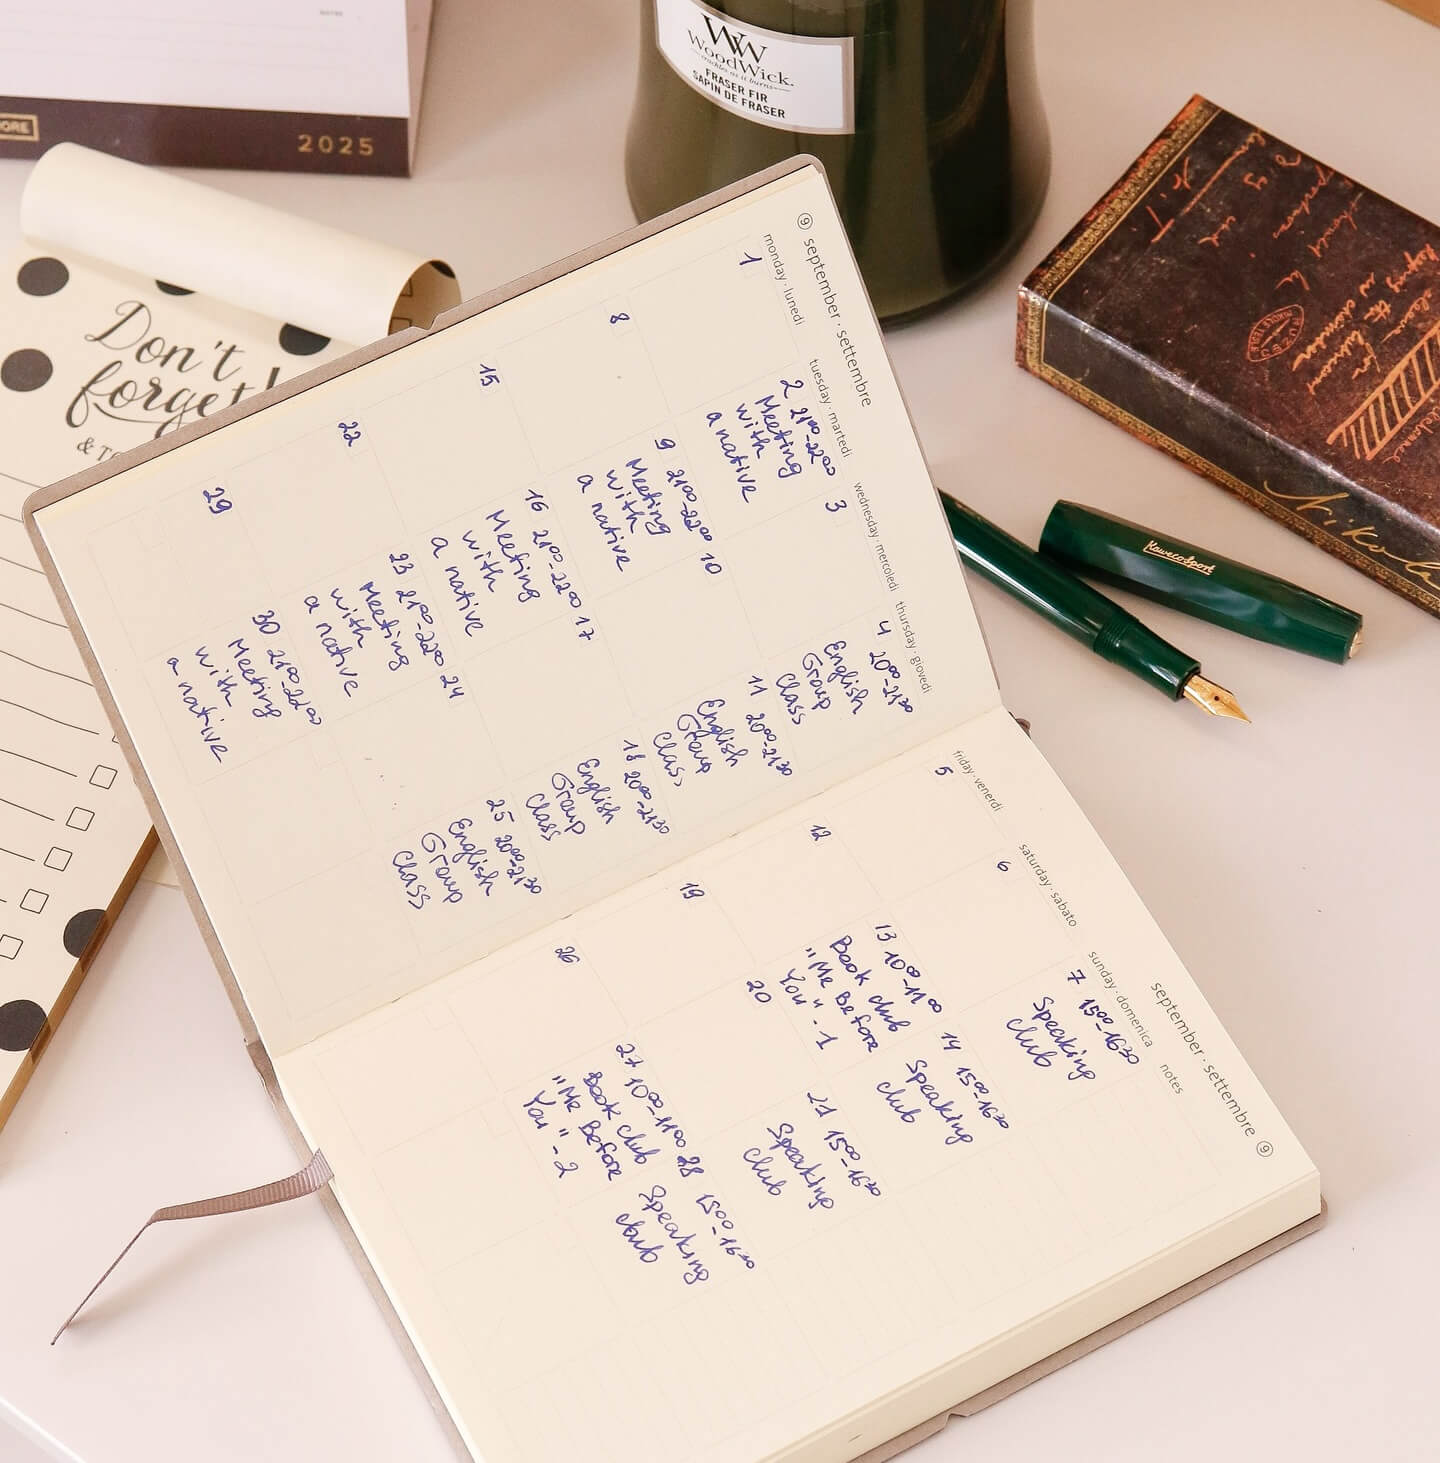 NOTES
2025
WW
WoodWick®
FRASER FIR
SAPIN DE FRASER
Don't
forget!
Kaweco Sport
⑨ september · settembre
monday · lunedì
1
8
15
22
29
tuesday · martedì
2 21⁰⁰-22⁰⁰
Meeting
with
a native
9 21⁰⁰-22⁰⁰
Meeting
with
a native
16 21⁰⁰-22⁰⁰
Meeting
with
a native
23 21⁰⁰-22⁰⁰
Meeting
with
a native
30 21⁰⁰-22⁰⁰
Meeting
with
a native
wednesday · mercoledì
3
10
17
24
thursday · giovedì
4 20⁰⁰-21³⁰
English
Group
Class
11 20⁰⁰-21³⁰
English
Group
Class
18 20⁰⁰-21³⁰
English
Group
Class
25 20⁰⁰-21³⁰
English
Group
Class
september · settembre ⑨
friday · venerdì
5
12
19
26
saturday · sabato
6
13 10⁰⁰-11⁰⁰
Book club
"Me Before
You" - 1
20
27 10⁰⁰-11⁰⁰
Book club
"Me Before
You" - 2
sunday · domenica
7 15⁰⁰-16³⁰
Speaking
club
14 15⁰⁰-16³⁰
Speaking
club
21 15⁰⁰-16³⁰
Speaking
club
28 15⁰⁰-16³⁰
Speaking
club
notes